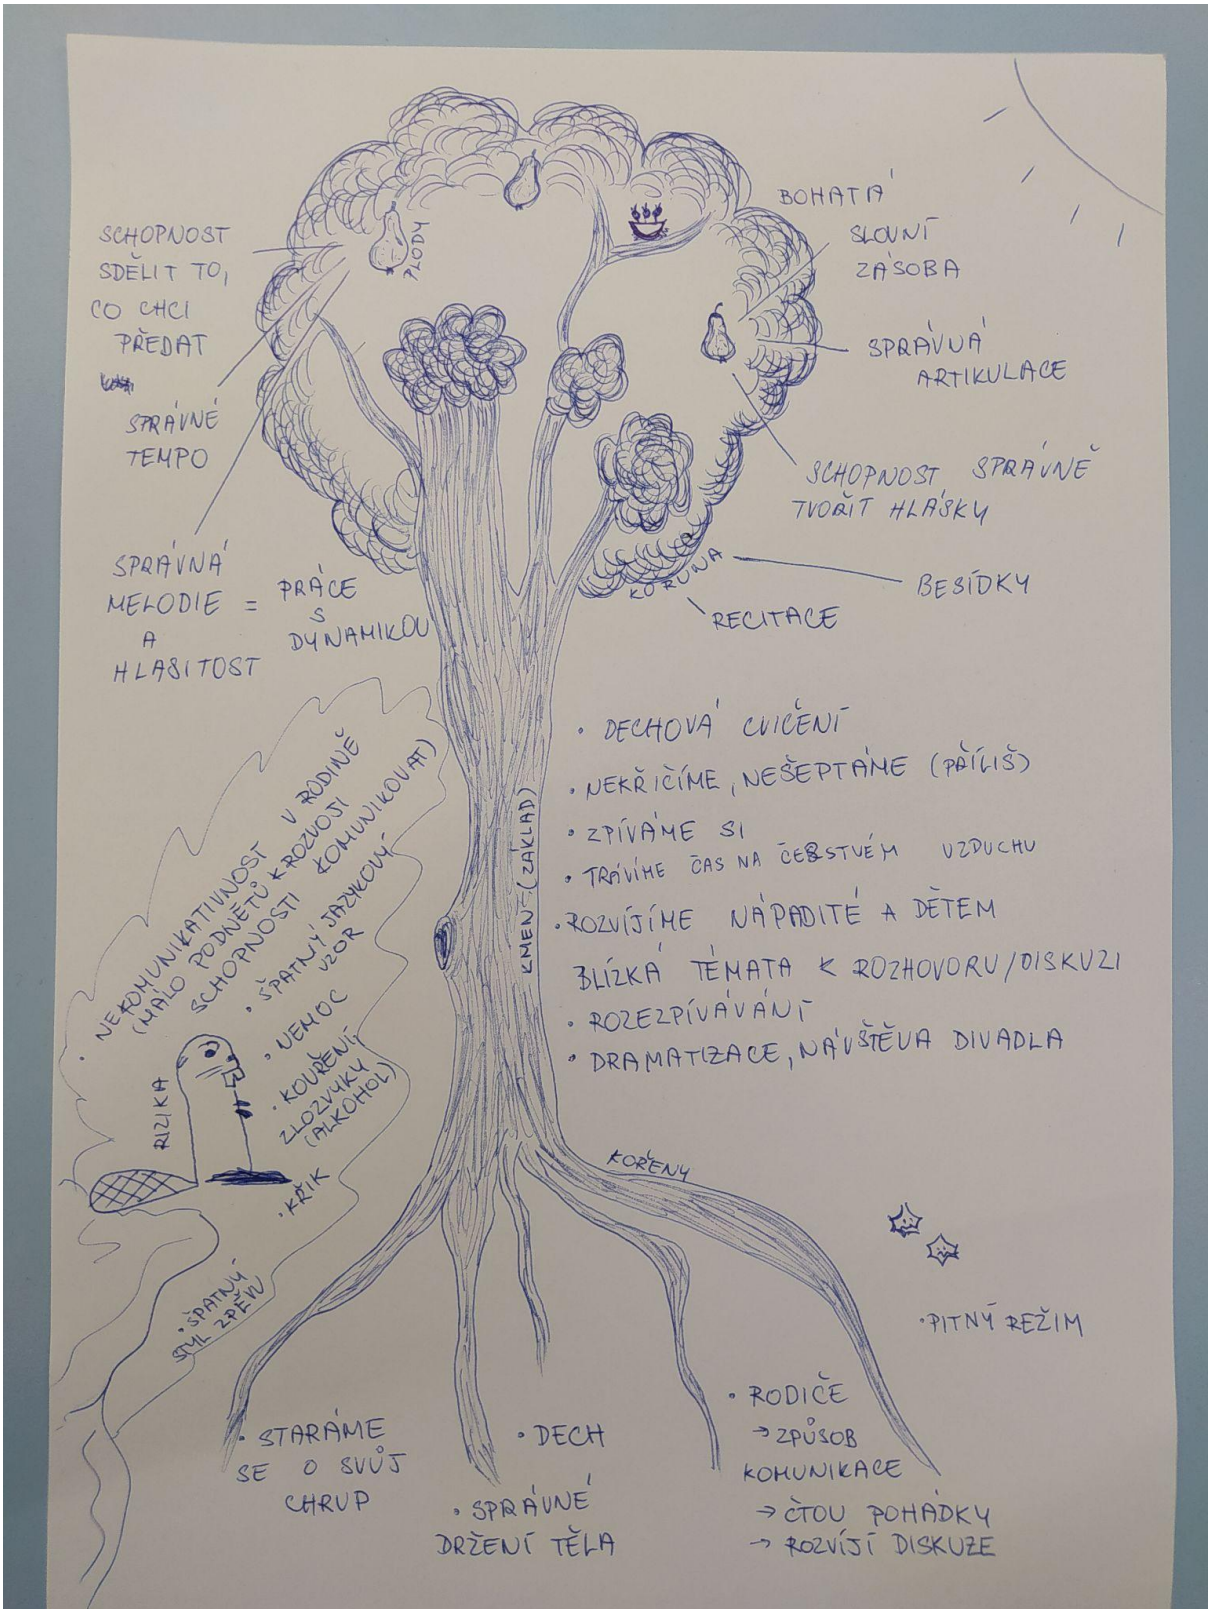 SCHOPNOST
SDĚLIT TO,
CO CHCI
PŘEDAT
SPRÁVNÉ
TEMPO
SPRÁVNÁ
MELODIE = PRÁCE
A S
HLASITOST DYNAMIKOU
PLODY
BOHATÁ
SLOVNÍ
ZÁSOBA
SPRÁVNÁ
ARTIKULACE
SCHOPNOST SPRÁVNĚ
TVOŘIT HLÁSKY
KORUNA
BESÍDKY
RECITACE
• DECHOVÁ CVIČENÍ
• NEKŘIČÍME, NEŠEPTÁME (PŘÍLIŠ)
• ZPÍVÁME SI
• TRÁVÍME ČAS NA ČERSTVÉM VZDUCHU
• ROZVÍJÍME NÁPADITÉ A DĚTEM
BLÍZKÁ TÉMATA K ROZHOVORU/DISKUZI
• ROZEZPÍVÁVÁNÍ
• DRAMATIZACE, NÁVŠTĚVA DIVADLA
KMEN (ZÁKLAD)
• NEKOMUNIKATIVNOST V RODINĚ
(MÁLO PODNĚTŮ K ROZVOJI
SCHOPNOSTI KOMUNIKOVAT)
• ŠPATNÝ JAZYKOVÝ
VZOR
• NEMOC
• KOUŘENÍ
ZLOZVYKY
(ALKOHOL)
• KŘIK
• ŠPATNÝ
STYL ZPĚVU
RIZIKA
KOŘENY
• PITNÝ REŽIM
• STARÁME
SE O SVŮJ
CHRUP
• DECH
• SPRÁVNÉ
DRŽENÍ TĚLA
• RODIČE
→ ZPŮSOB
KOMUNIKACE
→ ČTOU POHÁDKY
→ ROZVÍJÍ DISKUZE